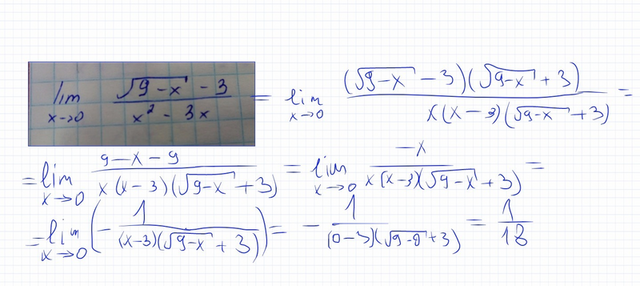 lim x→0 (√(9-x) - 3)/(x² - 3x) = lim x→0 ((√(9-x) - 3)(√(9-x) + 3))/(x(x-3)(√(9-x) + 3)) =
= lim x→0 (9-x-9)/(x(x-3)(√(9-x) + 3)) = lim x→0 (-x)/(x(x-3)(√(9-x) + 3)) =
= lim x→0 (- 1/((x-3)(√(9-x) + 3))) = - 1/((0-3)(√(9-0) + 3)) = 1/18